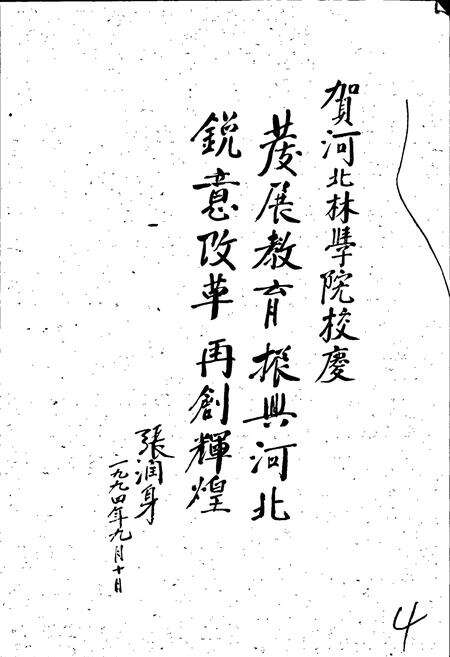 賀河北林學院校慶
發展教育振興河北
銳意改革再創輝煌
張润身
一九九四年九月十日
4